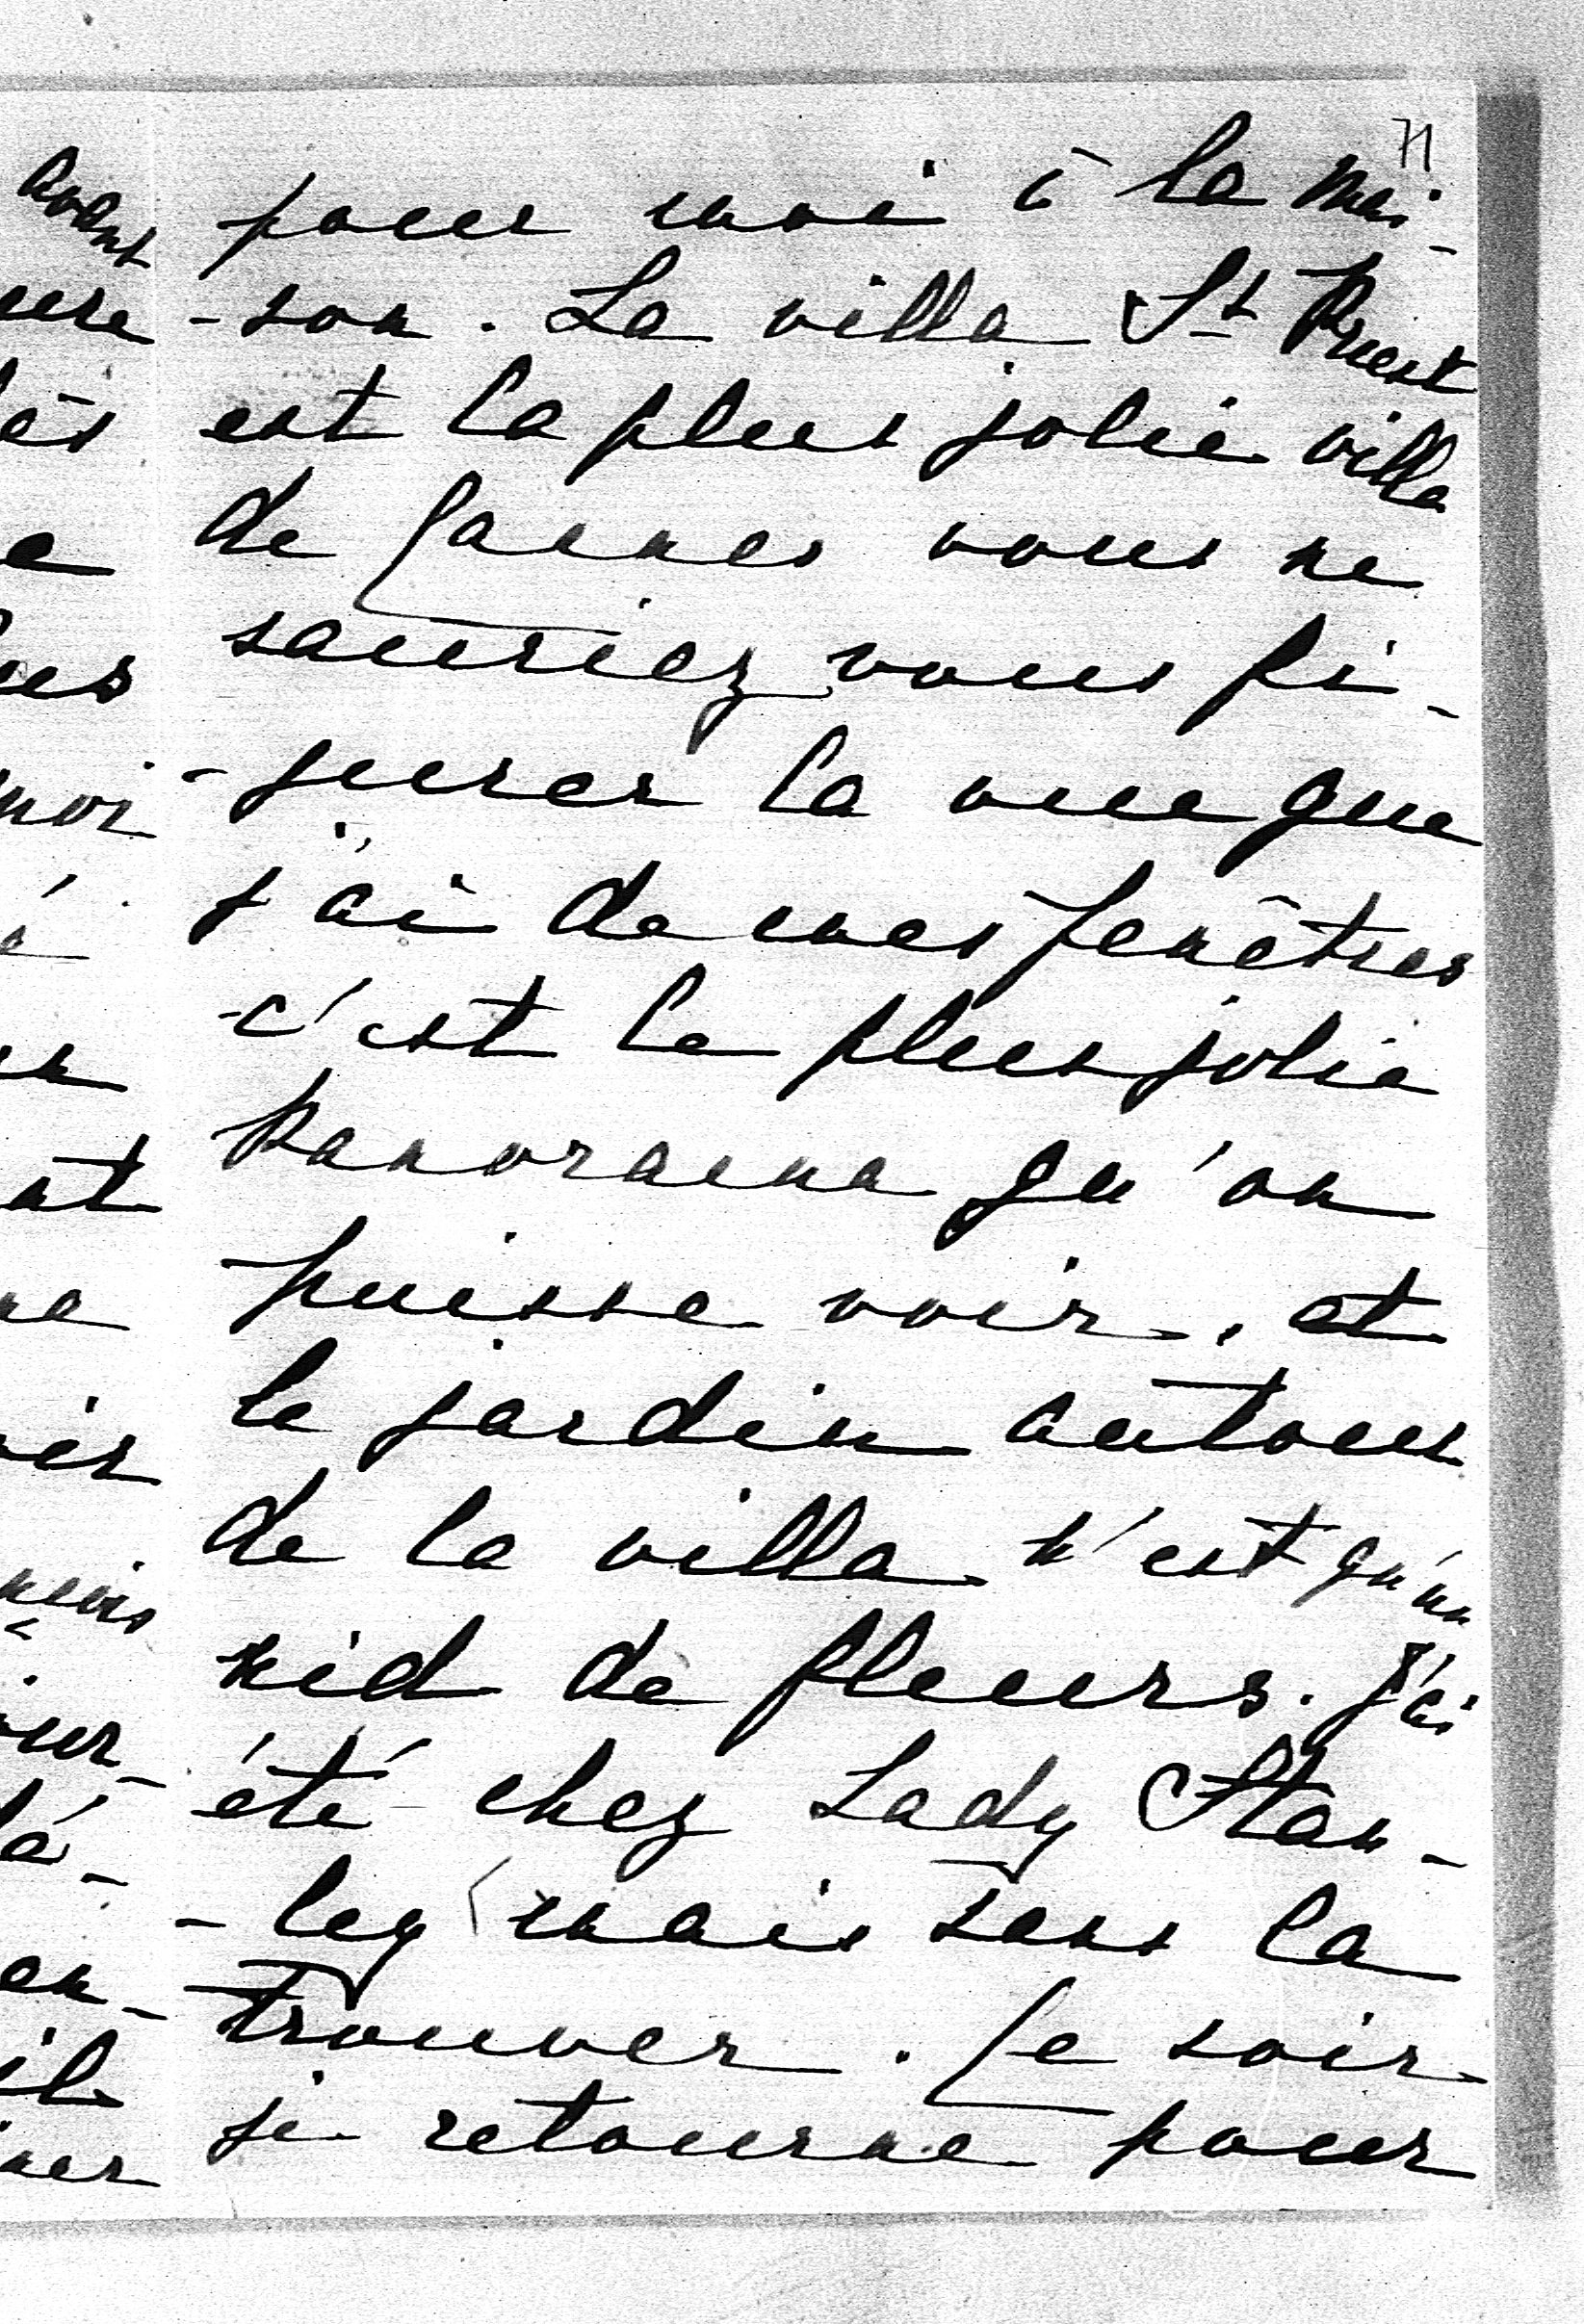 71
pour moi à la mai-
-son. La villa St Priest
est la plus jolie villa
de Cannes vous ne
sauriez vous fi-
-gurer la vue que
j'ai de mes fenêtres
c'est le plus jolie
panorama qu'on
puisse voir, et
le jardin autour
de la villa n'est qu'un
nid de fleurs. J'ai
été chez Lady Stan-
-ley mais sans la
trouver. Ce soir
je retourne pour